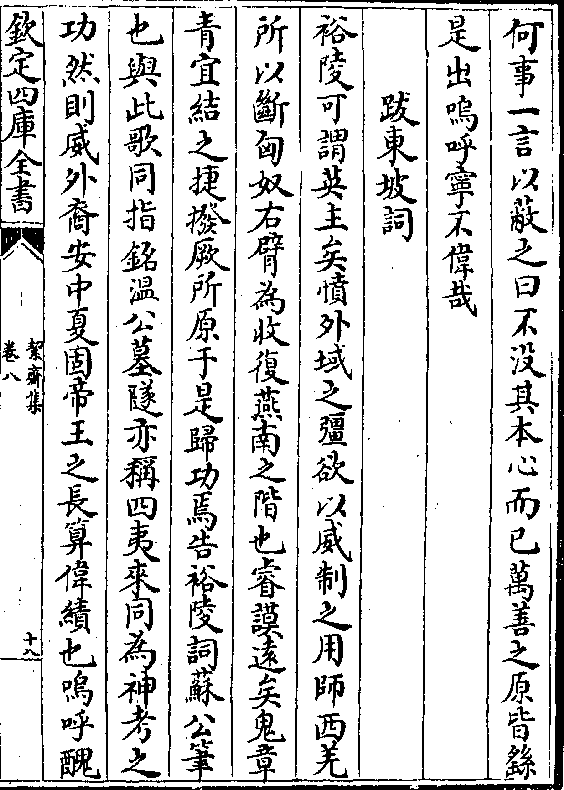 何事一言以蔽之曰不没其本心而已萬善之原皆繇
是出嗚呼寧不偉哉
跋東坡詞
裕陵可謂英主矣憤外域之彊欲以威制之用師西羌
所以斷匈奴右臂為收復燕南之階也睿謨逺矣鬼章
青宜結之捷撥厥所原于是歸功焉告裕陵詞蘇公筆
也與此歌同指銘温公墓隧亦稱四夷來同為神考之
功然則威外裔安中夏固帝王之長算偉績也嗚呼醜
欽定四庫全書
絜齋集
卷八
十八